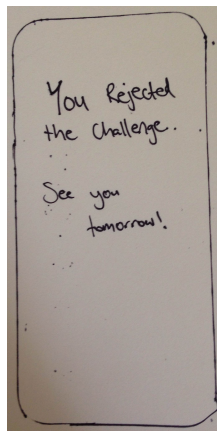 You Rejected
the Challenge.
See you
tomorrow!